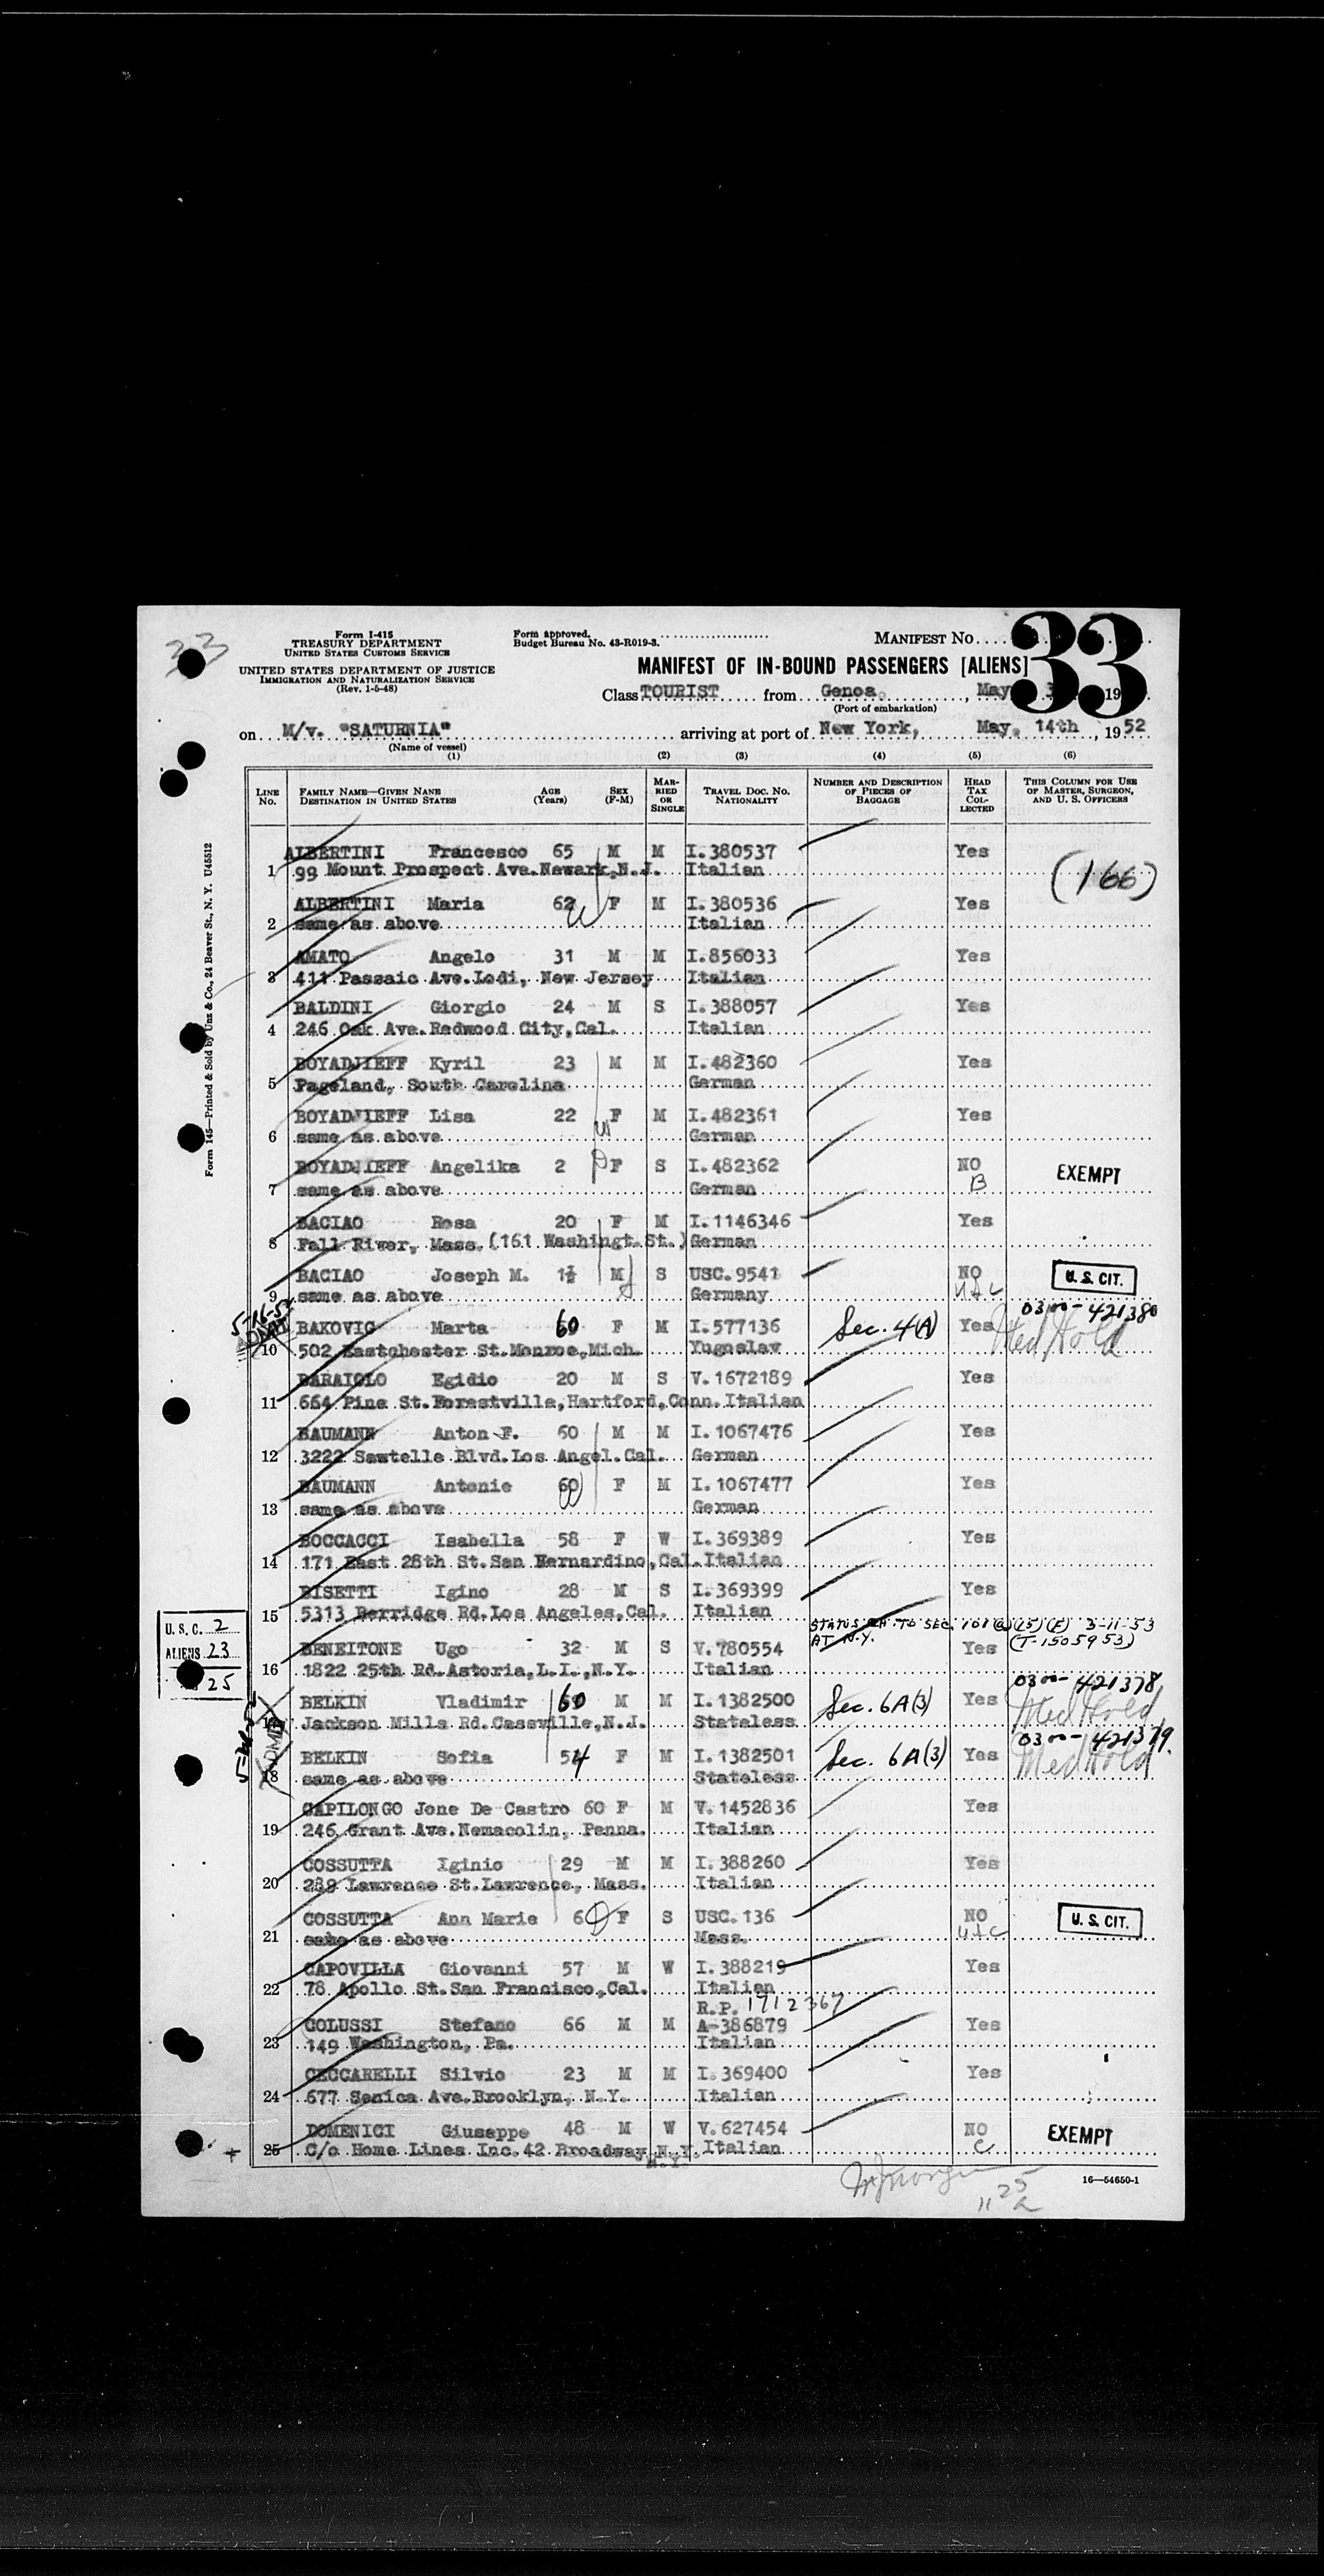 33
Form I-415
TREASURY DEPARTMENT
UNITED STATES CUSTOMS SERVICE
UNITED STATES DEPARTMENT OF JUSTICE
IMMIGRATION AND NATURALIZATION SERVICE
(Rev. 1-5-48)
Form approved.
Budget Bureau No. 43-R019-3.
MANIFEST NO.
33
MANIFEST OF IN-BOUND PASSENGERS [ALIENS]
Class TOURIST from Genoa, May 19
(Port of embarkation)
on M/v. "SATURNIA" arriving at port of New York, May. 14th, 1952
(Name of vessel)
(1) (2) (3) (4) (5) (6)
LINE No. FAMILY NAME—GIVEN NAME DESTINATION IN UNITED STATES AGE (Years) SEX (F-M) MARRIED OR SINGLE TRAVEL DOC. NO. NATIONALITY NUMBER AND DESCRIPTION OF PIECES OF BAGGAGE HEAD TAX COLLECTED THIS COLUMN FOR USE OF MASTER, SURGEON, AND U. S. OFFICERS
Form 145—Printed & Sold by Unz & Co., 24 Beaver St., N. Y. U45512
ALBERTINI Francesco 65 M M I.380537 Yes
1 99 Mount Prospect Ave.Newark,N.J. Italian (166)
ALBERTINI Maria 62 F M I.380536 Yes
2 same as above Italian
AMATO Angelo 31 M M I.856033 Yes
3 411 Passaic Ave.Lodi, New Jersey Italian
BALDINI Giorgio 24 M S I.388057 Yes
4 246 Oak Ave.Redwood City,Cal. Italian
BOYADJIEFF Kyril 23 M M I.482360 Yes
5 Pageland, South Carolina German
BOYADJIEFF Lisa 22 F M I.482361 Yes
6 same as above German
BOYADJIEFF Angelika 2 F S I.482362 NO EXEMPT
7 same as above German B
BACIAO Rosa 20 F M I.1146346 Yes
8 Fall River, Mass.(161 Washingt.St.)German
BACIAO Joseph M. 1½ M S USC.9541 NO U.S. CIT.
9 same as above Germany USC
5-16-52 ADMIT BAKOVIC Marta 60 F M I.577136 Sec. 4(A) Yes 0300-421380
10 502 Eastchester St.Monroe,Mich. Yugoslav Med Hold
BARAIOLO Egidio 20 M S V.1672189 Yes
11 664 Pine St.Forestville,Hartford,Conn.Italian
BAUMANN Anton F. 60 M M I.1067476 Yes
12 3222 Sawtelle Blvd.Los Angel.Cal. German
BAUMANN Antonie 60 F M I.1067477 Yes
13 same as above German
BOCCACCI Isabella 58 F W I.369389 Yes
14 171 East 28th St.San Bernardino,Cal.Italian
BISETTI Igino 28 M S I.369399 Yes
15 5313 Berridge Rd.Los Angeles,Cal. Italian
STATUS CH. TO SEC. 101(a)(15)(E) 3-11-53
AT N.Y. (T-1505953)
U.S.C. 2
ALIENS 23
25
BENEITONE Ugo 32 M S V.780554 Yes
16 1822 25th Rd.Astoria,L.I.,N.Y. Italian
BELKIN Vladimir 60 M M I.1382500 Sec. 6A(3) Yes 0300-421378
17 Jackson Mills Rd.Cassville,N.J. Stateless Med Hold
BELKIN Sofia 54 F M I.1382501 Sec. 6A(3) Yes 0300-421379
18 same as above Stateless Med Hold
CAPILONGO Jone De Castro 60 F M V.1452836 Yes
19 246 Grant Ave.Nemacolin, Penna. Italian
COSSUTTA Iginio 29 M M I.388260 Yes
20 239 Lawrence St.Lawrence, Mass. Italian
COSSUTTA Ann Marie 6 F S USC.136 NO U.S. CIT.
21 same as above Mass. USC
CAPOVILLA Giovanni 57 M W I.388219 Yes
22 78 Apollo St.San Francisco,Cal. Italian
R.P. 1712367
COLUSSI Stefano 66 M M A-386879 Yes
23 149 Washington, Pa. Italian
CECCARELLI Silvio 23 M M I.369400 Yes
24 677 Senica Ave.Brooklyn, N.Y. Italian
DOMENICI Giuseppe 48 M W V.627454 NO EXEMPT
25 C/o Home Lines Inc.42 Broadway N.Y. Italian C
N.Y.
16—54650-1